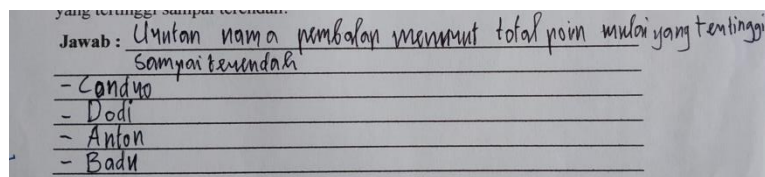 yang tertinggi sampai terendah.
Jawab : Urutan nama pembalap menurut total poin mulai yang tertinggi
sampai terendah
- Canduo
- Dodi
- Anton
- Badu